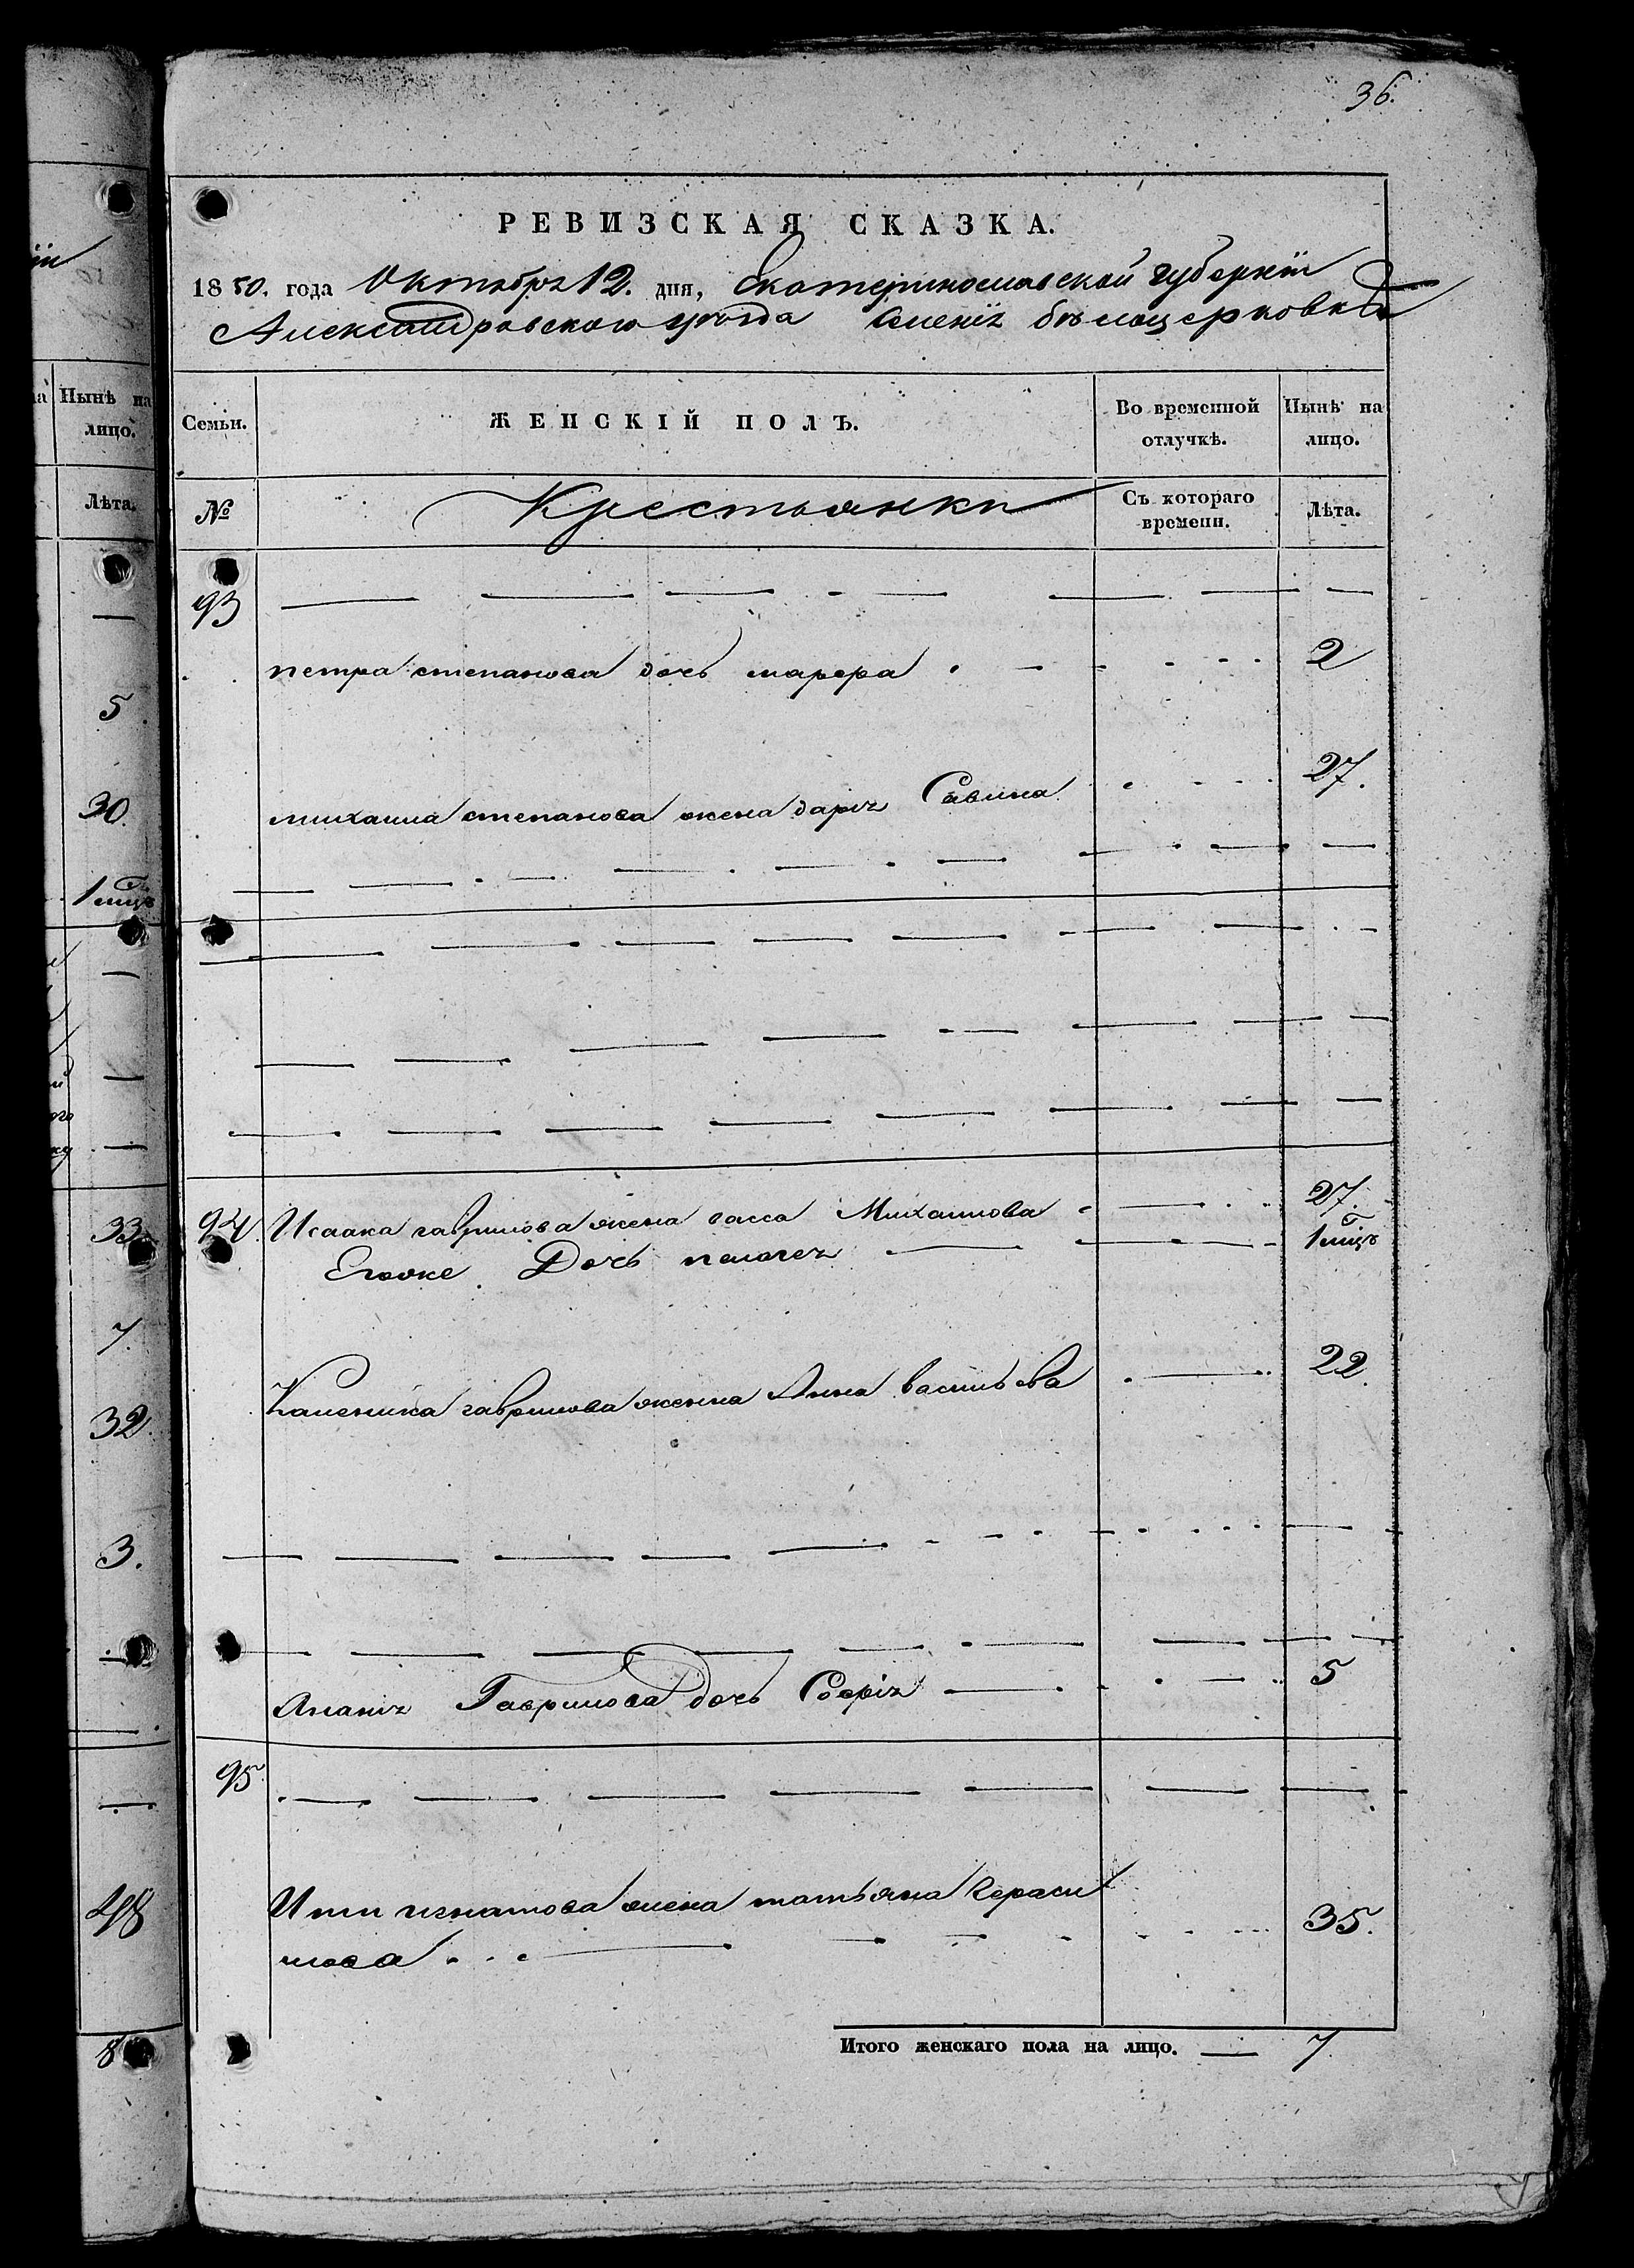 36.
РЕВИЗСКАЯ СКАЗКА.
1850. года Октября 12. дня, Екатеринославской губернïи
Александровскаго уѣзда Селенïя бѣлоцерковки
на Нынѣ на лицо.
Лѣта.
Семьи. ЖЕНСКІЙ ПОЛЪ. Во временной отлучкѣ. Нынѣ на лицо.
№ Крестьянки Съ котораго времени. Лѣта.
93
петра степанова дочь марфа 2
5
михаила степанова жена дарiя Савина 27.
30.
1 мцъ
94. Исаака гаврилова жена васса Михаилова 27.
Егоже Дочь пелагея 1 мцъ
33.
7.
Каленика гаврилова женна Анна васильева 22.
32.
3.
Ананiя Гаврилова дочь Софiя 5
95
Игнатова жена татьяна Гераси 35.
мова
48
Итого женскаго пола на лицо. 7
8